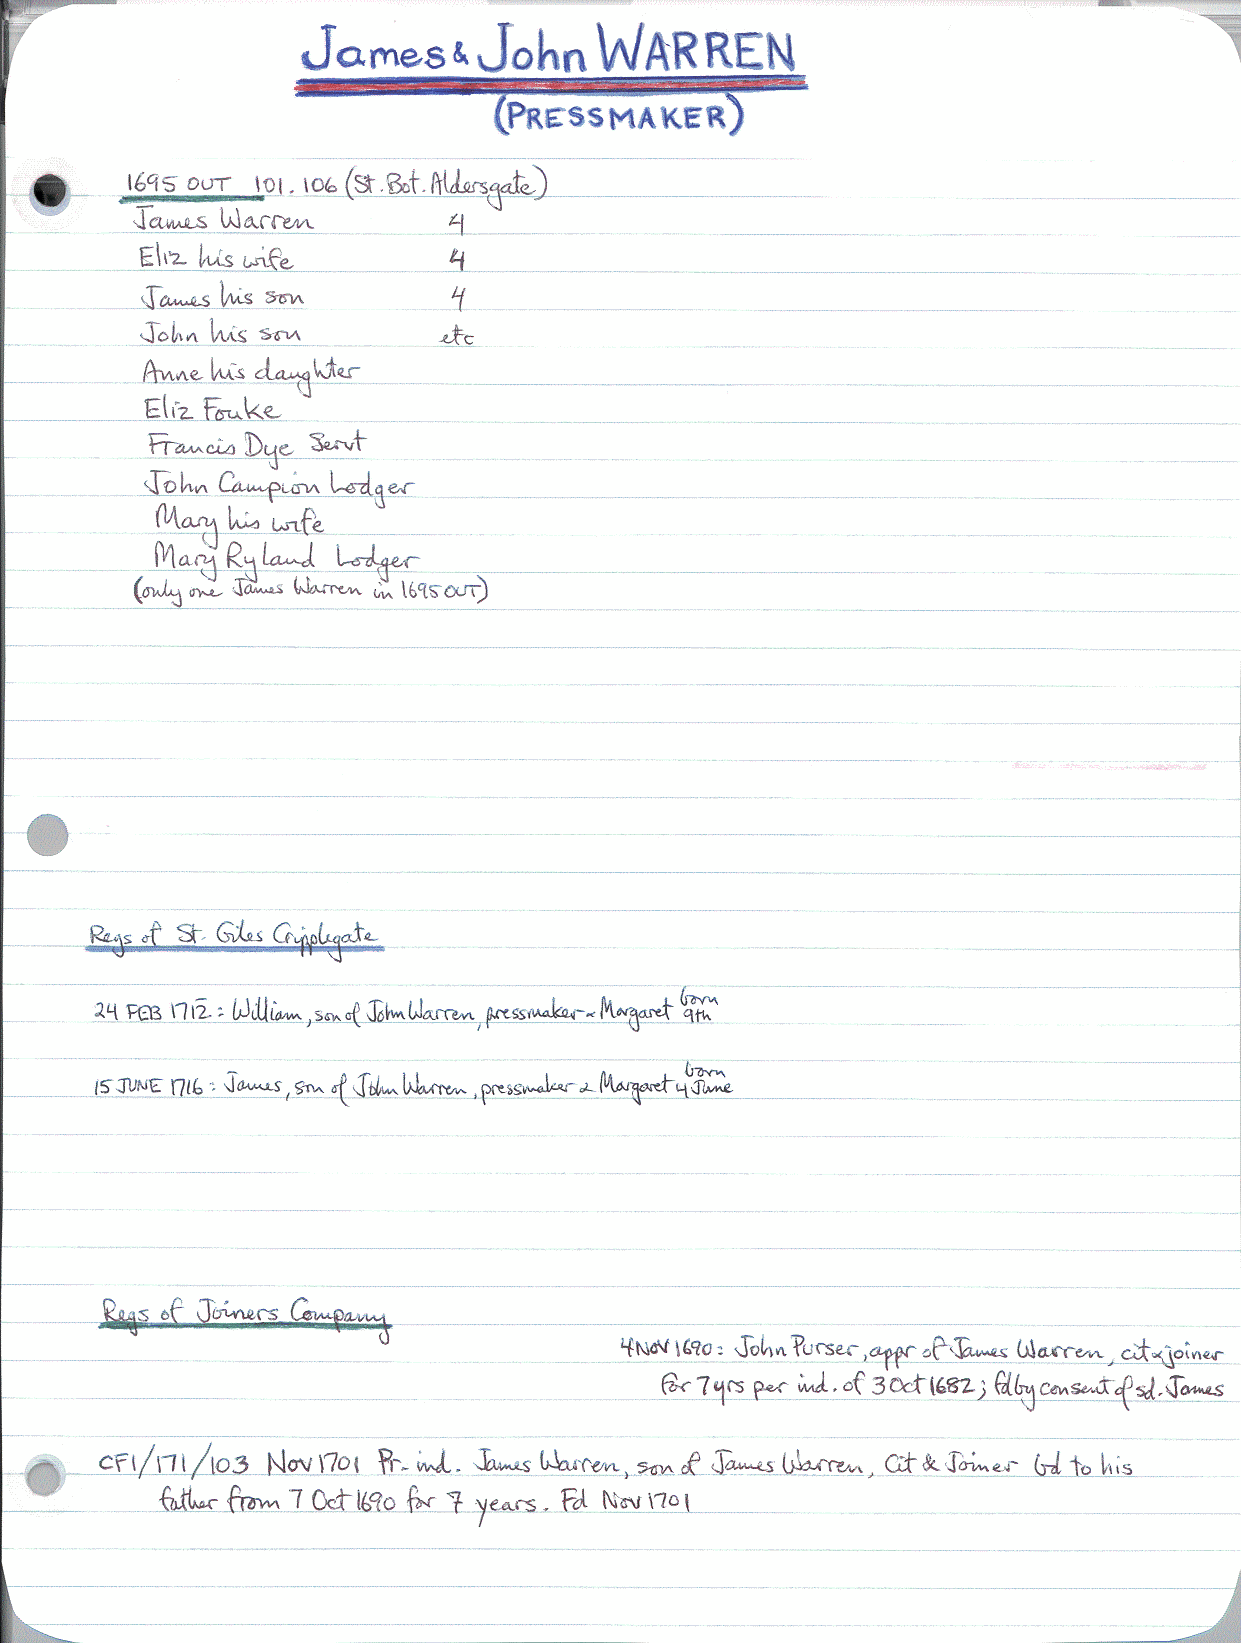 James & John WARREN
(PRESSMAKER)
1695 OUT 101.106 (St. Bot. Aldersgate)
James Warren 4
Eliz his wife 4
James his son 4
John his son etc
Anne his daughter
Eliz Fouke
Francis Dye Servt
John Campion Lodger
Mary his wife
Mary Ryland Lodger
(only one James Warren in 1695 OUT)
Regs of St. Giles Cripplegate
24 FEB 1712: William, son of John Warren, pressmaker & Margaret born 9th
15 JUNE 1716: James, son of John Warren, pressmaker & Margaret born 4 June
Regs of Joiners Company
4 NOV 1690: John Purser, appr of James Warren, cit & joiner
for 7 yrs per ind. of 3 Oct 1682; fd by consent of sd. James
CF1/171/103 Nov 1701 Pr. ind. James Warren, son of James Warren, Cit & Joiner bd to his
father from 7 Oct 1690 for 7 years. Fd Nov 1701